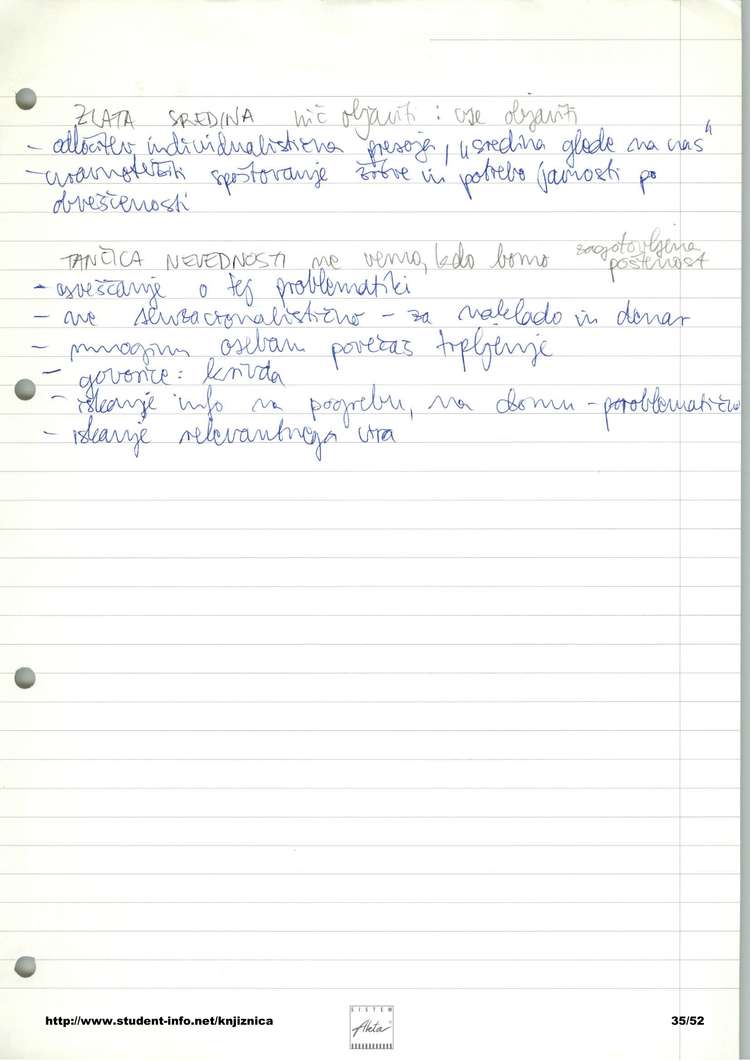 ZLATA SREDINA nič objaviti : vse objaviti
- odločitev individualistična presoja, „sredina glede na nas“
- uravnotežiti spoštovanje žrtve in potrebo javnosti po
obveščenosti
TANČICA NEVEDNOSTI ne vemo, kdo bomo zagotovljena
poštenost
- osveščanje o tej problematiki
- ne senzacionalistično - za naklado in denar
- mnogim osebam povečaš trpljenje
- govorice: krivda
- iskanje info na pogrebu, na domu - poroblematično
- iskanje relevantnega vira
http://www.student-info.net/knjiznica
SISTEM
Aleta
35/52